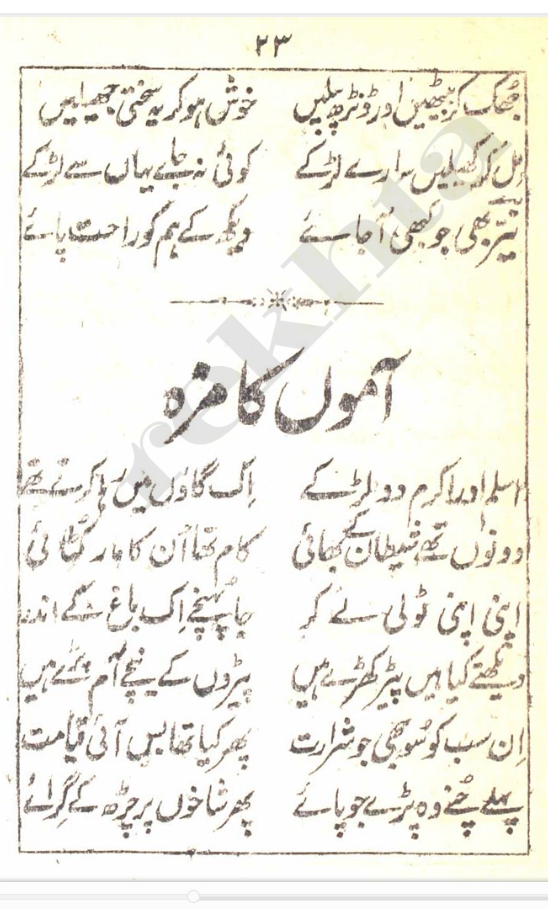 ۲۳
جھک کر بیٹھیں اور ڈونڑھ پلیں خوش ہو کر یہ سختی جھیلیں
مل کر کھیلیں سارے لڑکے کوئی نہ جائے یہاں سے لڑکے
نیّر بھی جو کبھی آجائے دیکھ کے ہم کو راحت پائے
آموں کا مزہ
اسلم اور اکرم دو لڑکے اِک گاؤں میں رہا کرتے تھے
دونوں تھے شیطان کے بھائی کام تھا اُن کا مار کٹائی
اپنی اپنی ٹولی لے کر جا پہنچے اِک باغ کے اندر
دیکھتے کیا ہیں پیڑ کھڑے ہیں پیڑوں کے نیچے آم پڑے ہیں
اِن سب کو سُوجھی جو شرارت پھر کیا تھا بس آئی قیامت
پہلے چُنے وہ پڑے جو پائے پھر شاخوں پر چڑھ کے گرائے
rekhta